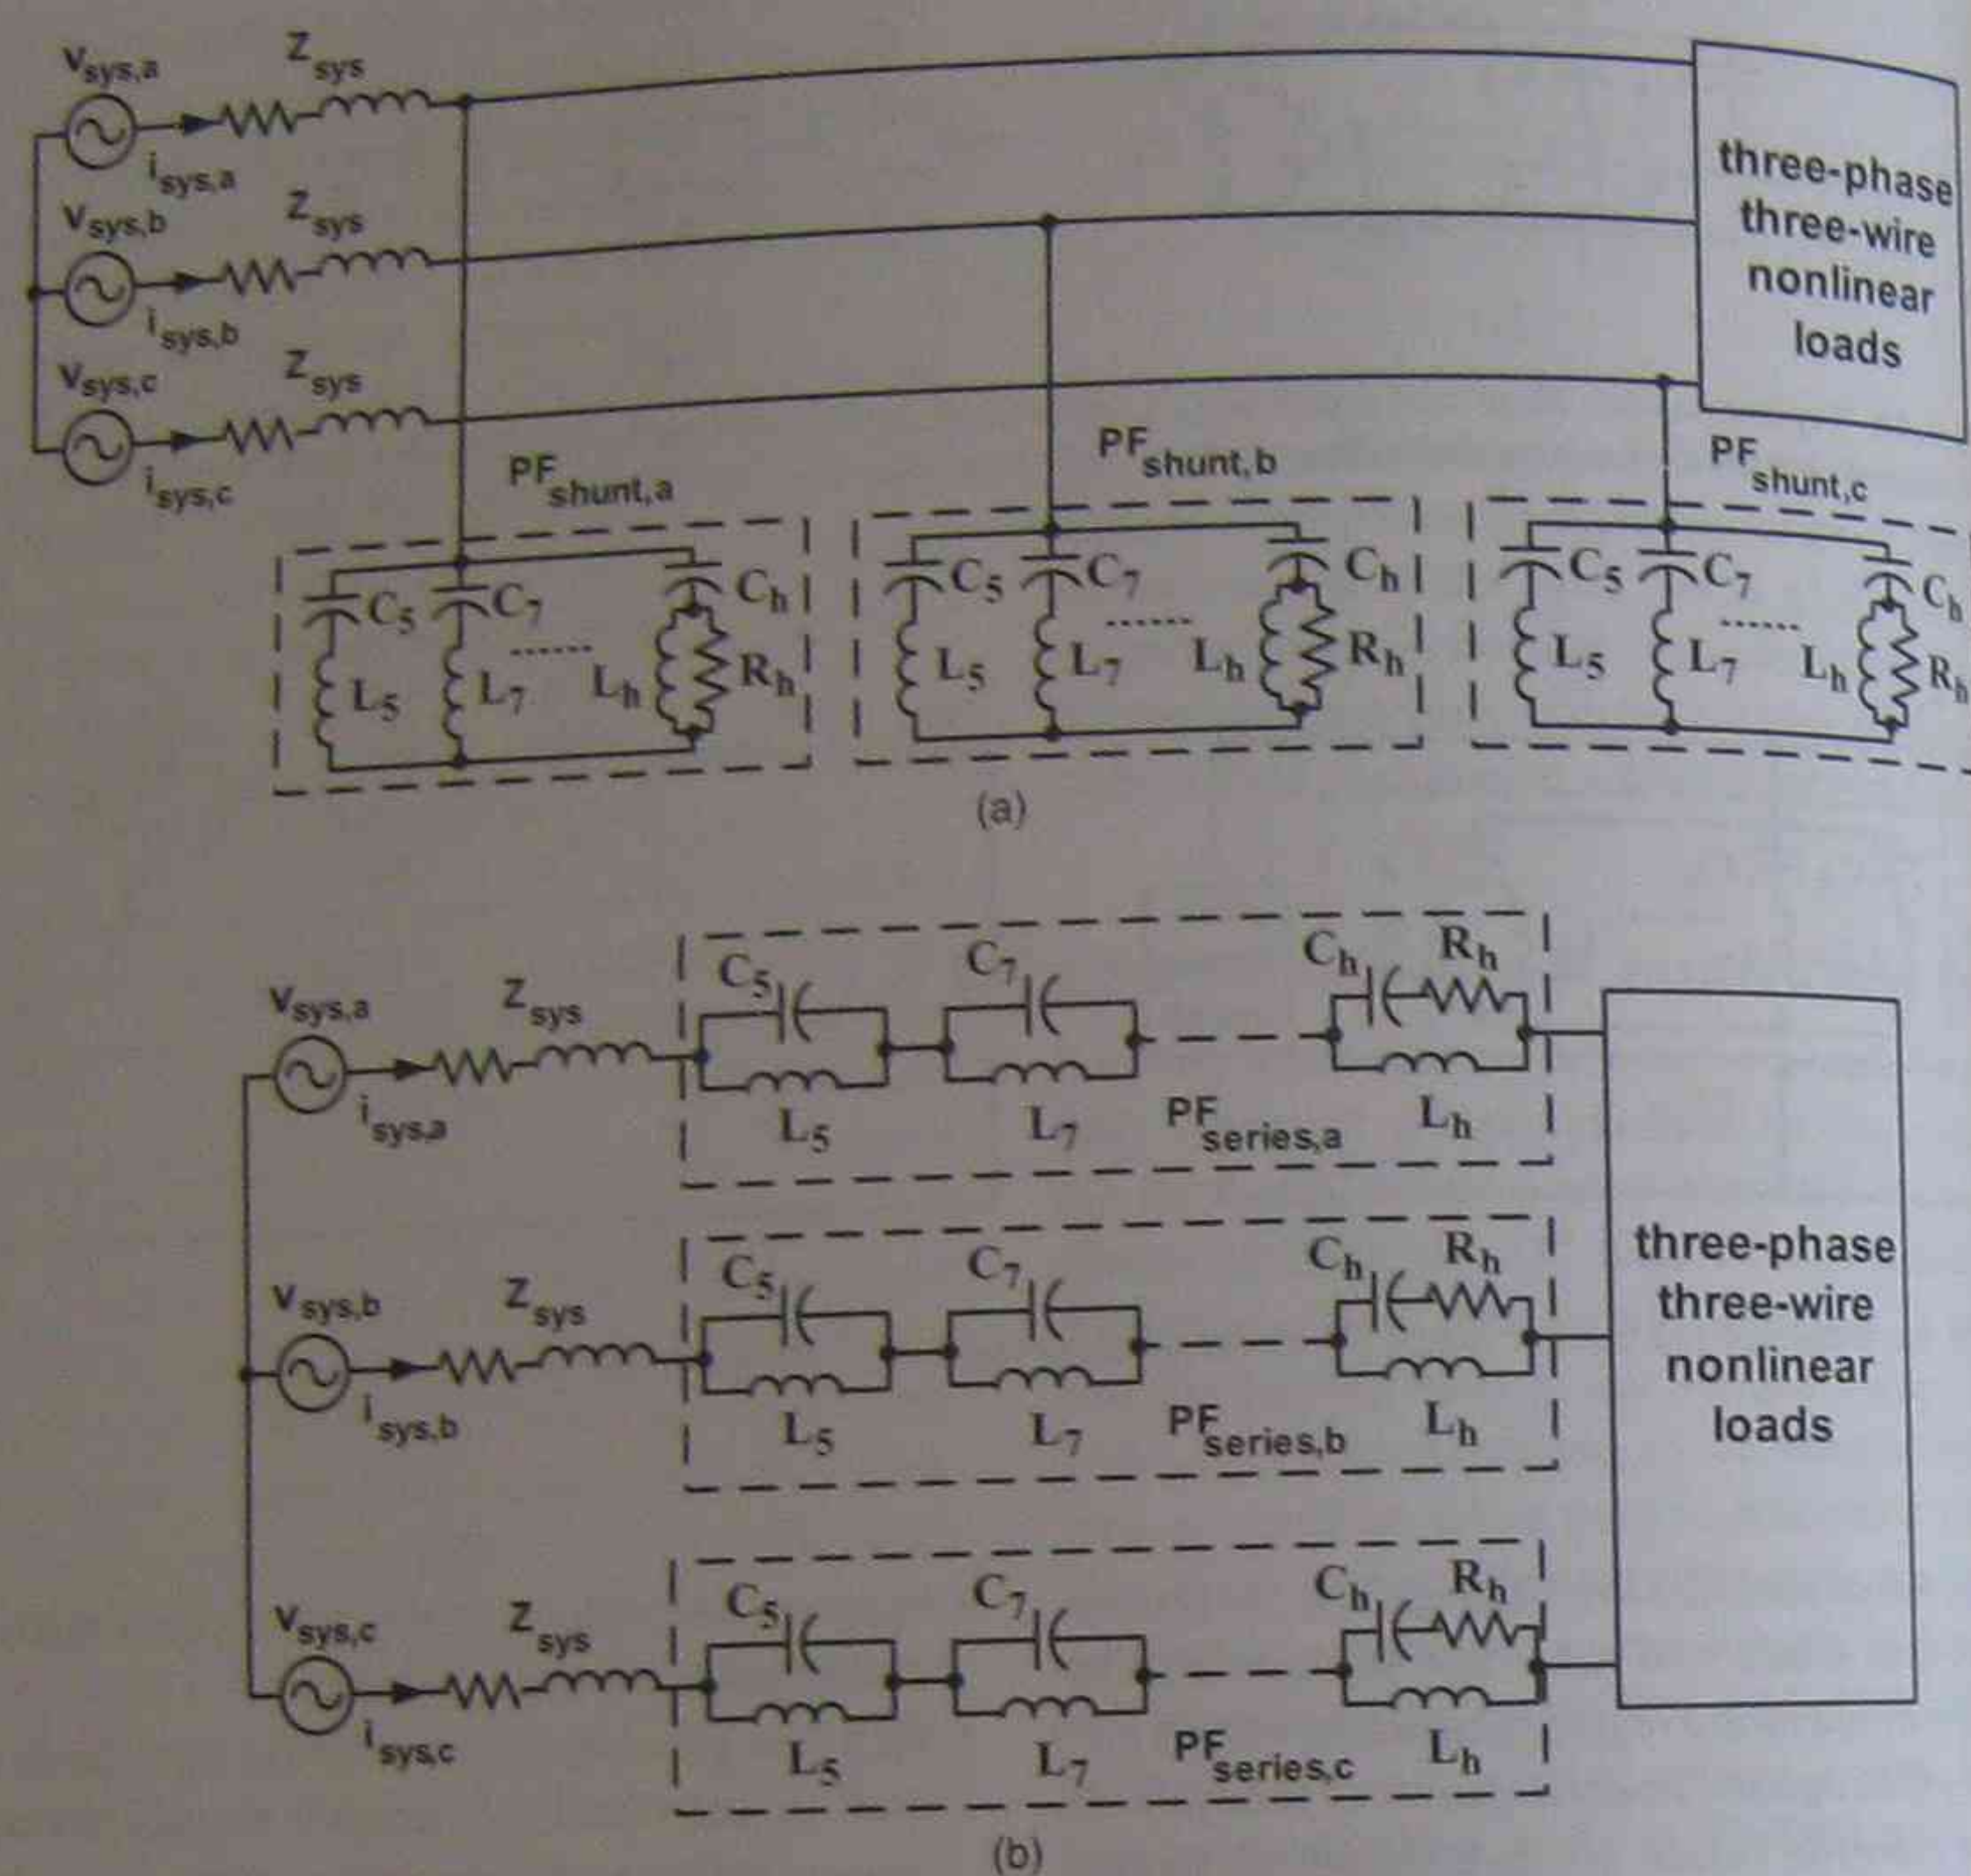 Vsys,a
Zsys
isys,a
Vsys,b
Zsys
isys,b
Vsys,c
Zsys
isys,c
three-phase
three-wire
nonlinear
loads
PFshunt,a
PFshunt,b
PFshunt,c
C5 C7 Ch
L5 L7 ...... Lh Rh
C5 C7 Ch
L5 L7 ...... Lh Rh
C5 C7 Ch
L5 L7 ...... Lh Rh
(a)
Vsys,a
Zsys
isys,a
C5 C7 Ch Rh
L5 L7 PFseries,a Lh
Vsys,b
Zsys
isys,b
C5 C7 Ch Rh
L5 L7 PFseries,b Lh
Vsys,c
Zsys
isys,c
C5 C7 Ch Rh
L5 L7 PFseries,c Lh
three-phase
three-wire
nonlinear
loads
(b)